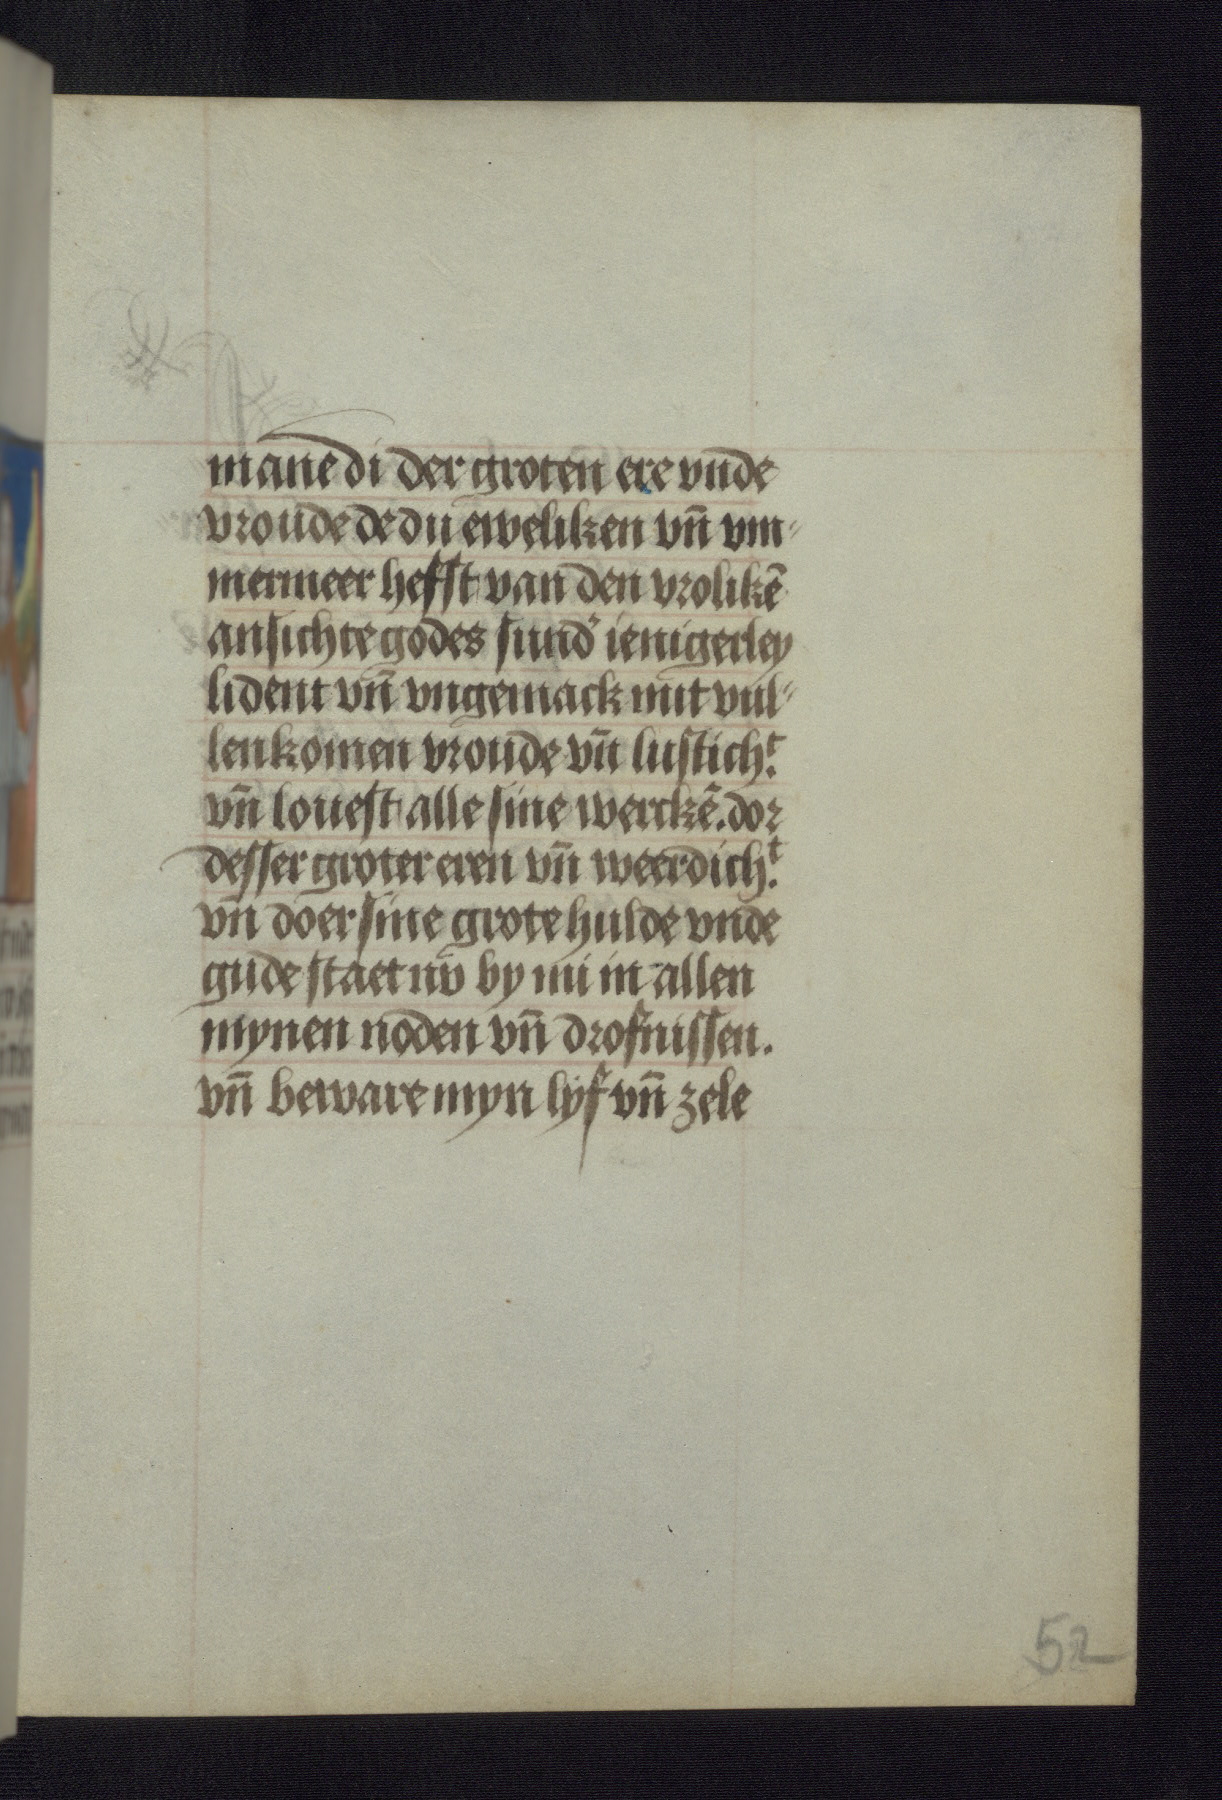 mane di der groten ere vnde
vroude de du eweliken vn̄ vm-
mermeer hefst van den vrolikē
ansichte godes sund' ienigerley
lident vn̄ vngemack mit vul-
lenkomen vroude vn̄ lustichᵗ.
vn̄ louest alle sine werckē. dor
desser groter eren vn̄ weerdichᵗ.
vn doer sine grote hulde vnde
gude staet nv by mi in allen
mynen noden vn̄ drofnissen.
vn̄ beware myn lyf vn̄ zele
52